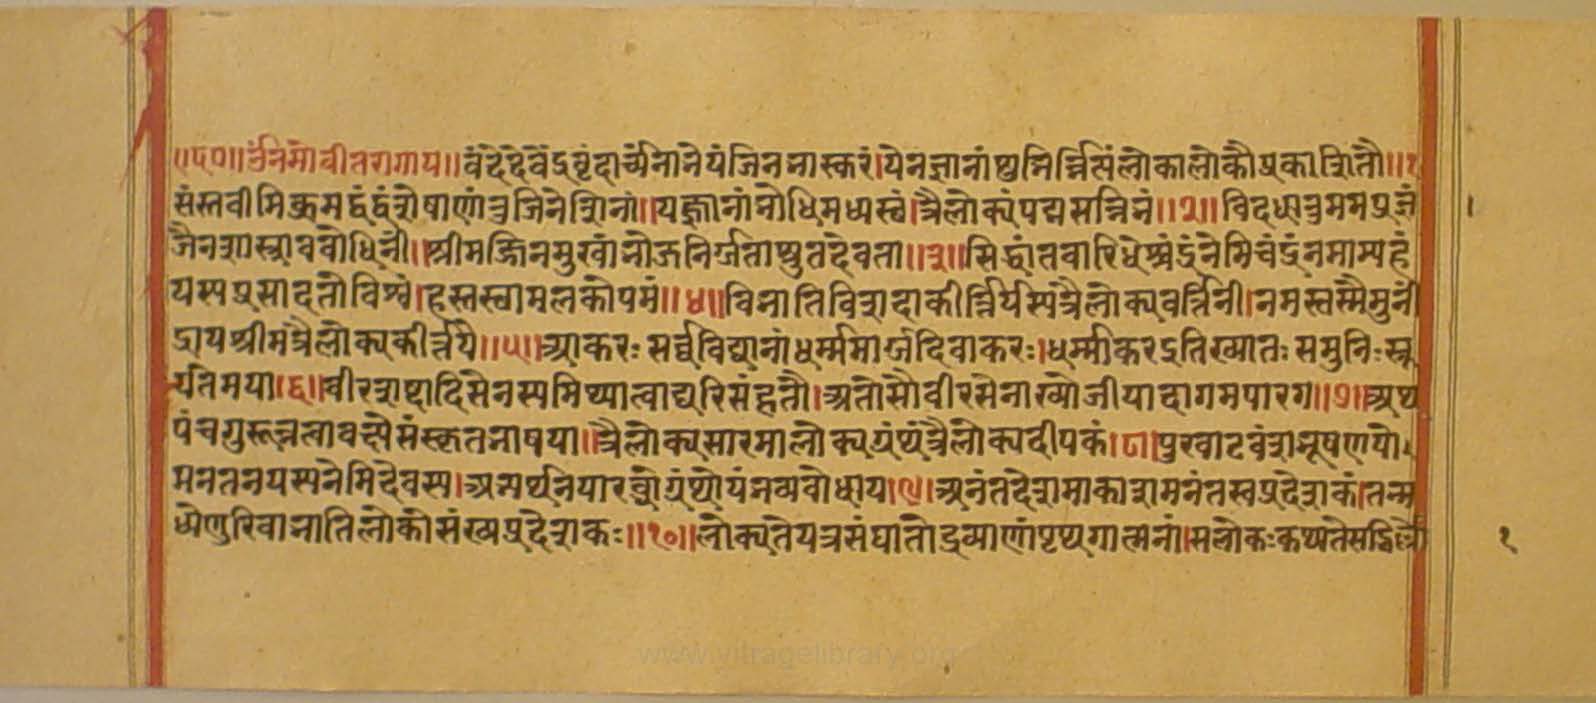 ॥५०॥ उं नमो वीतरागाय॥ वंदे देवेंद्रवृंदार्च्यं नानेयं जिननास्करं। येन ज्ञानांशुनिर्न्नित्सं लोकालोकौ प्रकाशितौ॥१
संस्तवीमि क्रमद्वंद्वं शेषाणां तु जिनेशिनां॥ यज्ज्ञानांनोधिमध्यस्थं। त्रैलोक्यं पद्मसन्निनं॥२॥ विदधातु मम प्रज्ञं
जैनशास्त्राववोधिनी॥ श्रीमज्जिनमुखांनोजनिर्गता श्रुतदेवता॥३॥ सिद्धांतवारिधेश्चंद्रं नेमिचंद्रं नमाम्यहं
यस्य प्रसादतो विश्वं। हस्तस्थामलकोपमं॥४॥ विनाति विशदाकीर्त्तिर्यस्य त्रैलोक्यवर्त्तिनी। नमस्तस्मै मुनीं
द्राय श्रीमत्रैलोक्यकीर्त्तये॥५॥ आकरः सर्व्वविद्यानां धर्म्ममार्गदिवाकरः। धर्म्माकर इति ख्यातः स मुनिः स्तू
यते मया।६॥ वीरशष्टादिसेनस्य मिथ्यात्वाद्यरिसंहतौ। अतोसौ वीरसेनाख्यो जीयादागमपारग॥७॥ अथ
पंचगुरून्नत्वा वक्ष्ये संस्कृतनाषया॥ त्रैलोक्यसारमालोक्य ग्रंथं त्रैलोक्यदीपकं।८। पुरवाटवंशनूषणयो।
मनतनयस्य नेमिदेवस्य। अन्यर्थनयारब्धो ग्रंथोयं नव्यवोधाय।९। अनंतदेशमाकाशमनंतस्वप्रदेशकं। तन्म
ध्येणुरिवानाति लोकोसंख्यप्रदेशकः॥१०॥ लोक्यते यत्र संघातो द्रव्याणां पृथगात्मनां। स लोकः कथ्यते सद्भि
१